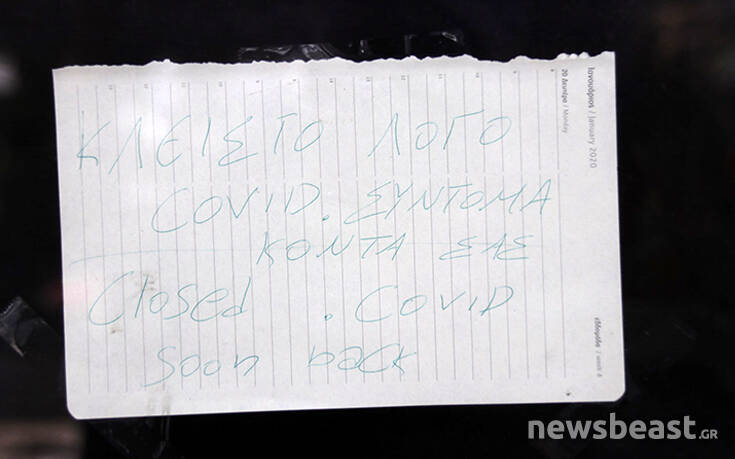 ΚΛΕΙΣΤΟ ΛΟΓΟ
COVID. ΣΥΝΤΟΜΑ
ΚΟΝΤΑ ΣΑΣ
Closed . COVID
soon back
Ιανουάριος / January 2020
20 Δευτέρα / Monday
εβδομάδα / week
newsbeast.GR